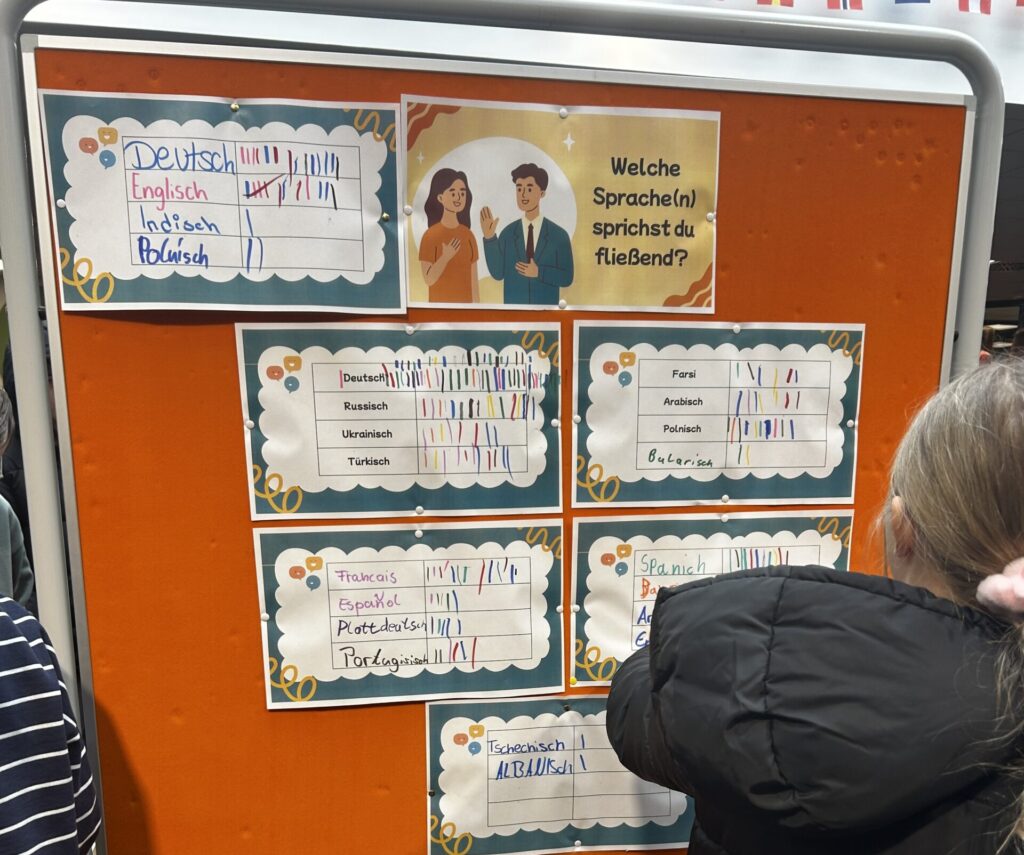 Deutsch
Englisch
Indisch
Polnisch
Welche
Sprache(n)
sprichst du
fließend?
Deutsch
Russisch
Ukrainisch
Türkisch
Farsi
Arabisch
Polnisch
Bularisch
Francais
Español
Plattdeutsch
Portugisisch
Spanich
Tschechisch
ALBANIsch